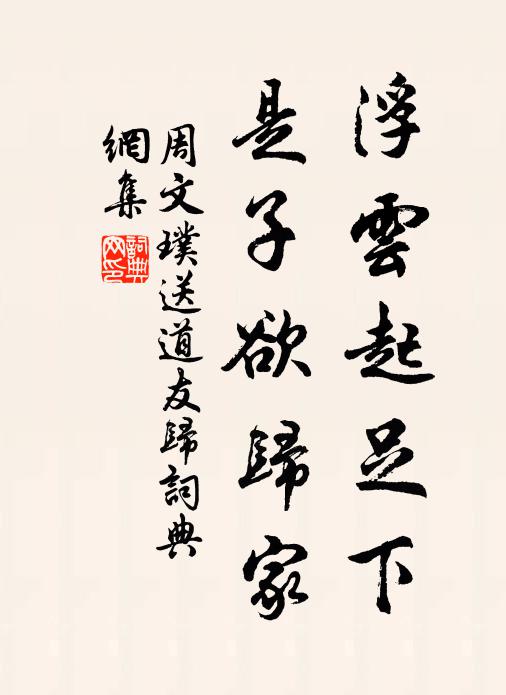 浮雲起足下
是子欲歸家
周文璞送道友歸詞典
網集
詞典
网印